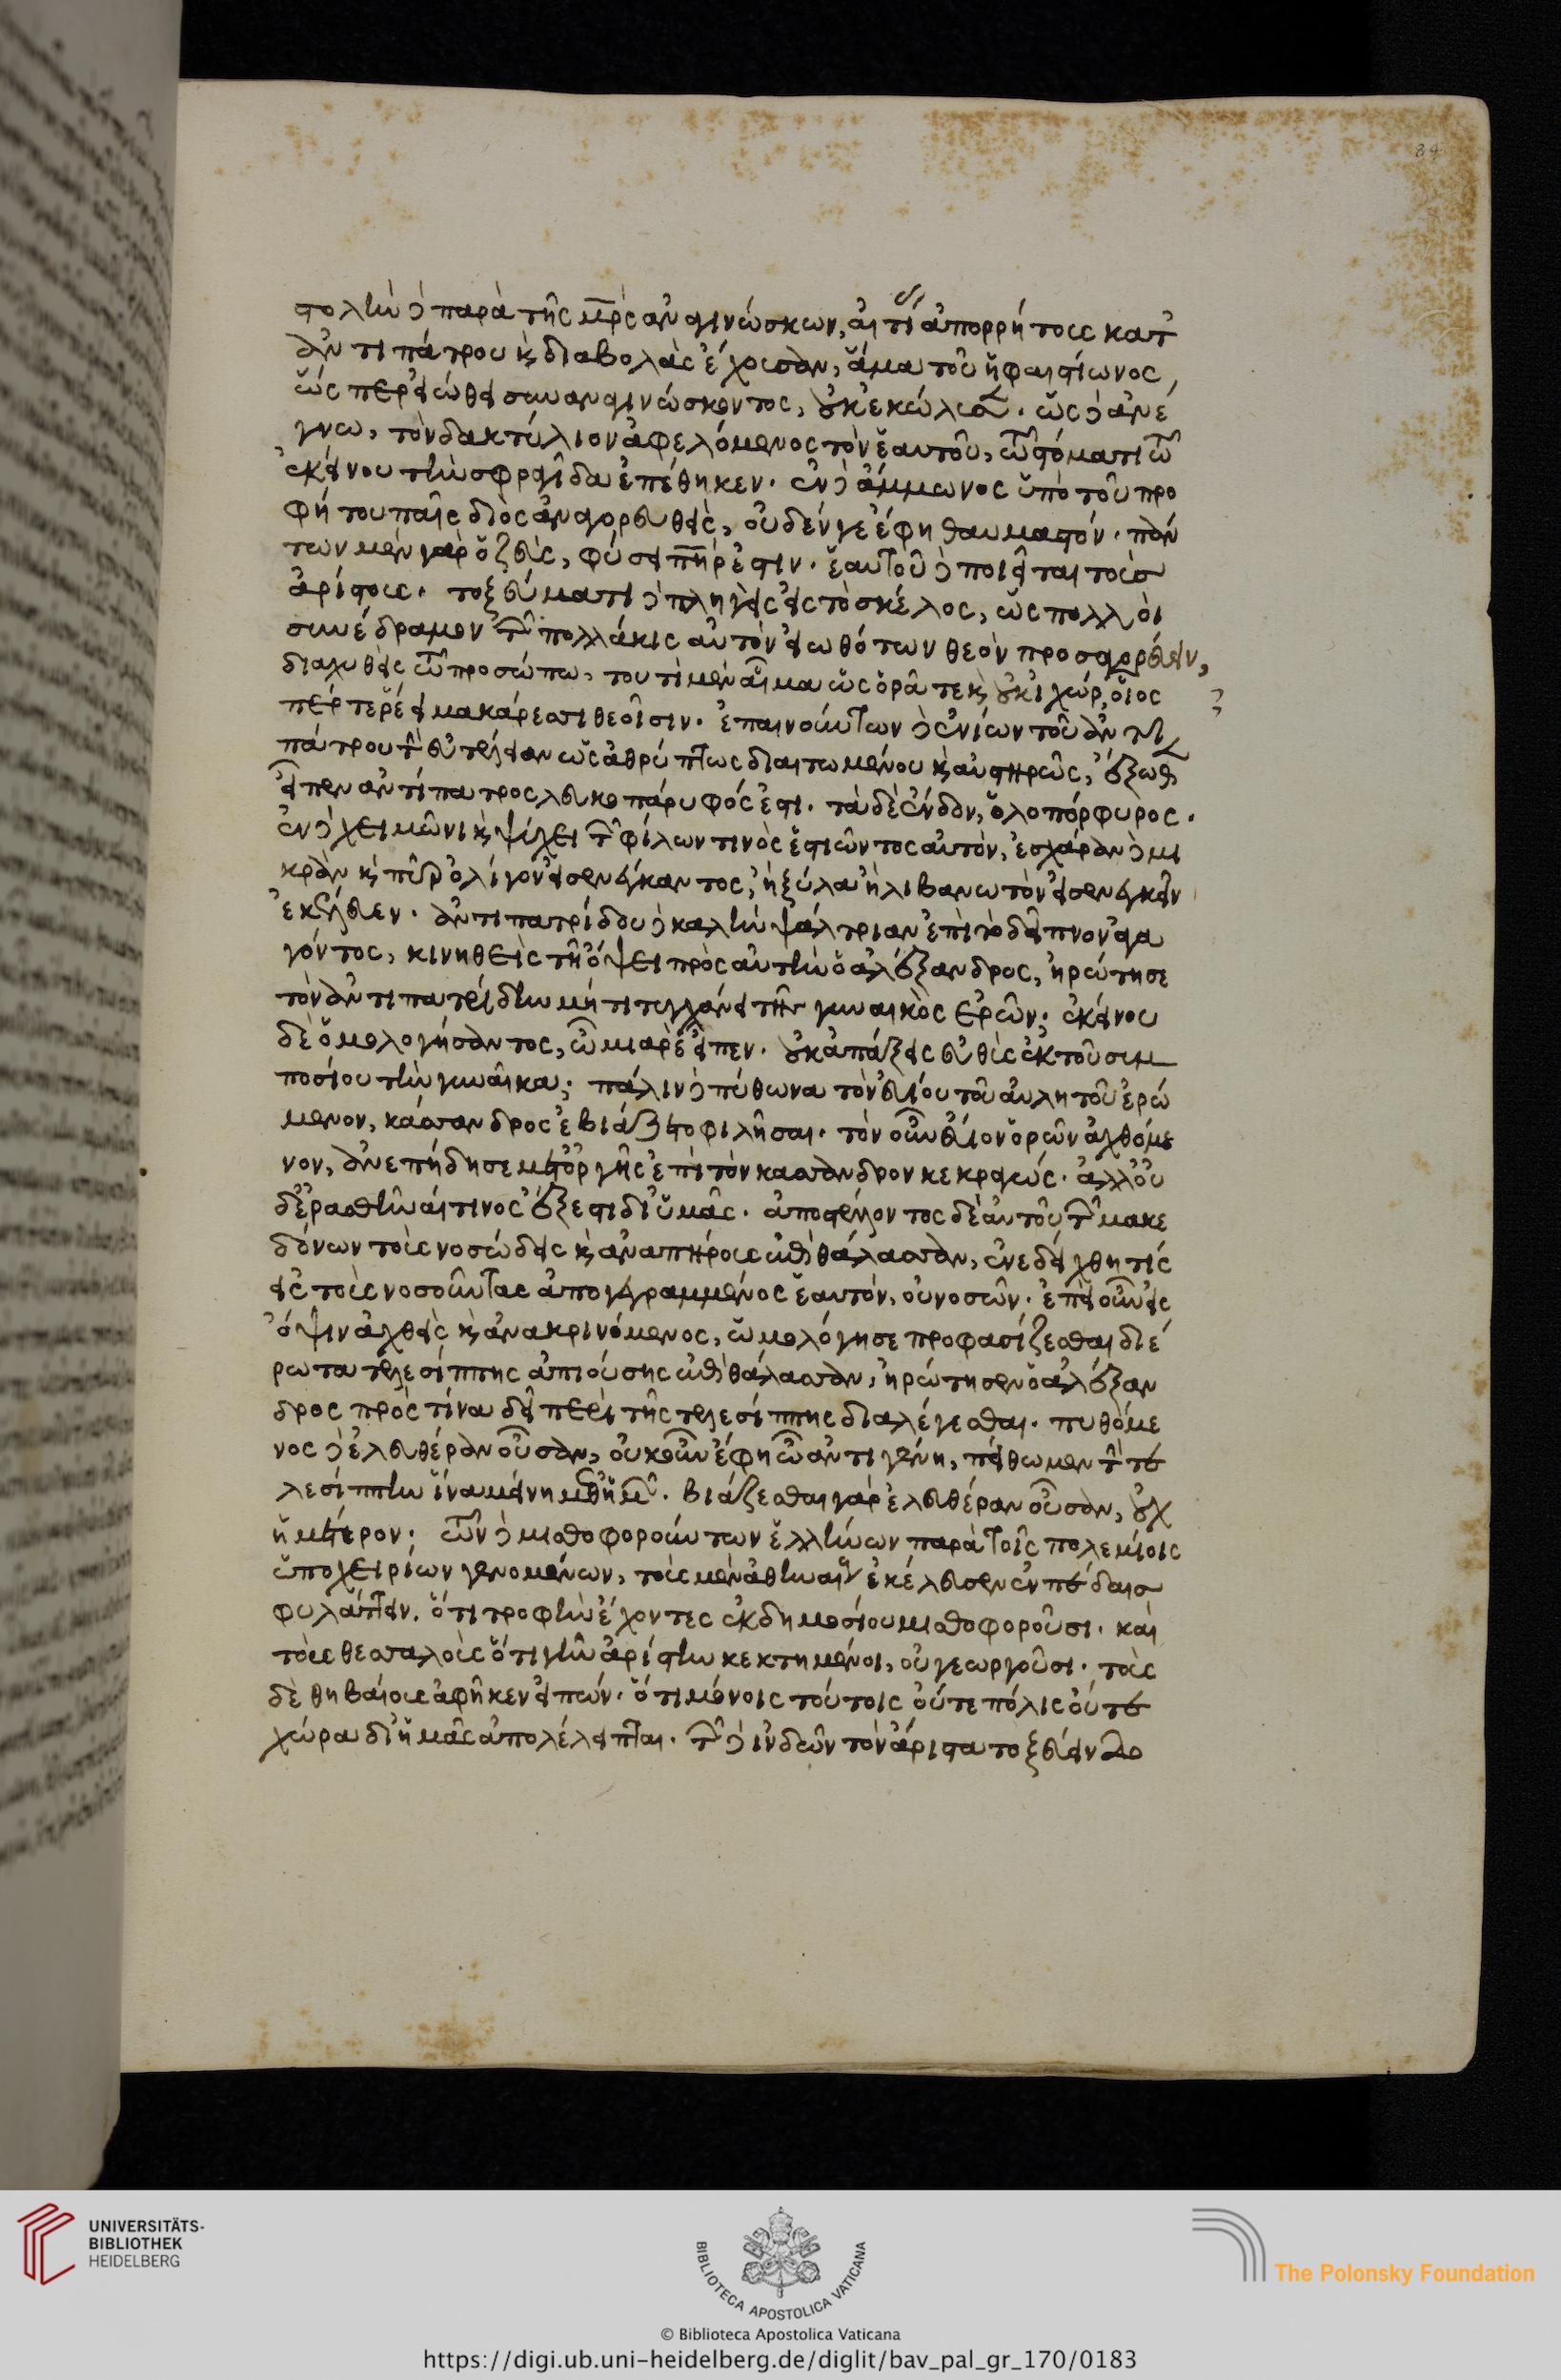 84
στολὴν δὲ παρὰ τῆς μρ̅ὸς ἀναγινώσκων, αἵ τινες ἀπορρήτους κατ'
ἀντιπάτρου καὶ διαβολὰς ἔχουσαν, ἅμα τοῦ ἡφαιστίωνος,
ὥς περ εἰώθει συναναγινώσκοντος, οὐκ ἐκώλυσεν. ὡς δὲ ἀνέ
γνω, τὸν δακτύλιον ἀφελόμενος τὸν ἑαυτοῦ, τῶ στόματι τῶ
ἐκείνου τὴν σφραγίδα ἐπέθηκεν. ἐν δὲ ἄμμωνος ὑπὸ τοῦ προ
φήτου παῖς διὸς ἀναγορευθεὶς, οὐδέν γε ἔφη θαυμαστόν. πάν
των μὲν γὰρ ὁ ζεὺς, φύσει πη̅ρ ἐστιν. ἑαυτοῦ δὲ ποιεῖται τοὺς
ἀρίστους. τοξεύματι δὲ πληγεὶς εἰς τὸ σκέλος, ὡς πολλοὶ
συνέδραμον τῶν πολλάκις αὐτὸν εἰωθότων θεὸν προσαγορεύειν,
διαχυθεὶς τῶ προσώπω, τουτὶ μὲν αἷμα ὡς ὁρᾶτε καὶ οὐκ ἰχώρ, οἷος
πέρ τε ῥέει μακάρεσσι θεοῖσιν. ἐπαινούντων δὲ ἐνίων τοῦ ἀντι
πάτρου τὴν εὐτέλειαν ὡς ἀθρύπτως διαιτωμένου καὶ αὐστηρῶς, ἔξωθεν
εἶπεν ἀντίπατρος λευκοπάρυφός ἐστι. τὰ δὲ ἔνδον, ὁλοπόρφυρος.
ἐν δὲ χειμῶνι καὶ ψύχει τῶν φίλων τινὸς ἑστιῶντος αὐτὸν, ἐσχάραν δὲ μι
κρὰν καὶ πῦρ ὀλίγον εἰσενέγκαντος, ἢ ξύλα ἢ λιβανωτὸν εἰσενεγκεῖν
ἐκέλευεν. ἀντιπατρίδου δὲ καλὴν ψάλτριαν ἐπὶ τὸ δεῖπνον ἀγα
γόντος, κινηθεὶς τῆ ὄψει πρὸς αὐτὴν ὁ ἀλέξανδρος, ἠρώτησε
τὸν ἀντιπατρίδην μή τι τυγχάνει τῆς γυναικὸς ἐρῶν. ἐκείνου
δὲ ὁμολογήσαντος, ὦ μιαρὲ εἶπεν. οὐκ ἀπάξεις εὐθὺς ἐκ τοῦ συμ
ποσίου τὴν γυναῖκα; πάλιν δὲ πύθωνα τὸν εὐίου τοῦ αὐλητοῦ ἐρώ
μενον, κάσσανδρος ἐβιάζετο φιλῆσαι. τὸν οὖν εὔιον ὁρῶν ἀχθόμε
νον, ἀνεπήδησε μετ' ὀργῆς ἐπὶ τὸν κάσσανδρον κεκραγώς. ἀλλ' οὐ
δ' ἐρασθῆναί τινος ἔξεστι δι' ὑμᾶς. ἀποστέλλοντος δὲ αὐτοῦ τῶν μακε
δόνων τοὺς νοσώδεις καὶ ἀναπήρους ἐπὶ θάλασσαν, ἐνεδείχθη τίς
εἰς τοὺς νοσοῦντας ἀπογεγραμμένος ἑαυτόν, οὐ νοσῶν. ἐπεὶ οὖν εἰς
ὄψιν ἀχθεὶς καὶ ἀνακρινόμενος, ὡμολόγησε προφασίζεσθαι δι' ἔ
ρωτα τελεσίππης ἀπιούσης ἐπὶ θάλασσαν, ἠρώτησεν ὁ ἀλέξαν
δρος πρὸς τίνα δεῖ περὶ τῆς τελεσίππης διαλέγεσθαι. πυθόμε
νος δὲ ἐλευθέραν οὖσαν, οὐκοῦν ἔφη ὦ ἀντιγένη, πείθωμεν τὴν τε
λεσίππην ἵνα μείνη μεθ' ἡμῶν. βιάζεσθαι γὰρ ἐλευθέραν οὖσαν, οὐχ
ἡμέτερον. τῶν δὲ μισθοφορούντων ἑλλήνων παρὰ τοῖς πολεμίοις
ὑποχειρίων γενομένων, τοὺς μὲν ἀθηναίους ἐκέλευσεν ἐν πέδαις
φυλάττειν. ὅτι τροφὴν ἔχοντες ἐκ δημοσίου μισθοφοροῦσι. καὶ
τοὺς θεσσαλοὺς ὅτι γῆν ἀρίστην κεκτημένοι, οὐ γεωργοῦσι. τοὺς
δὲ θηβαίους ἀφῆκεν εἰπών. ὅτι μόνοις τούτοις οὔτε πόλις οὔτε
χώρα δι' ἡμᾶς ἀπολέλειπται. τῶν δὲ ἰνδῶν τὸν ἄριστα τοξεύειν δο
UNIVERSITÄTS-
BIBLIOTHEK
HEIDELBERG
BIBLIOTECA APOSTOLICA VATICANA
The Polonsky Foundation
© Biblioteca Apostolica Vaticana
https://digi.ub.uni-heidelberg.de/diglit/bav_pal_gr_170/0183